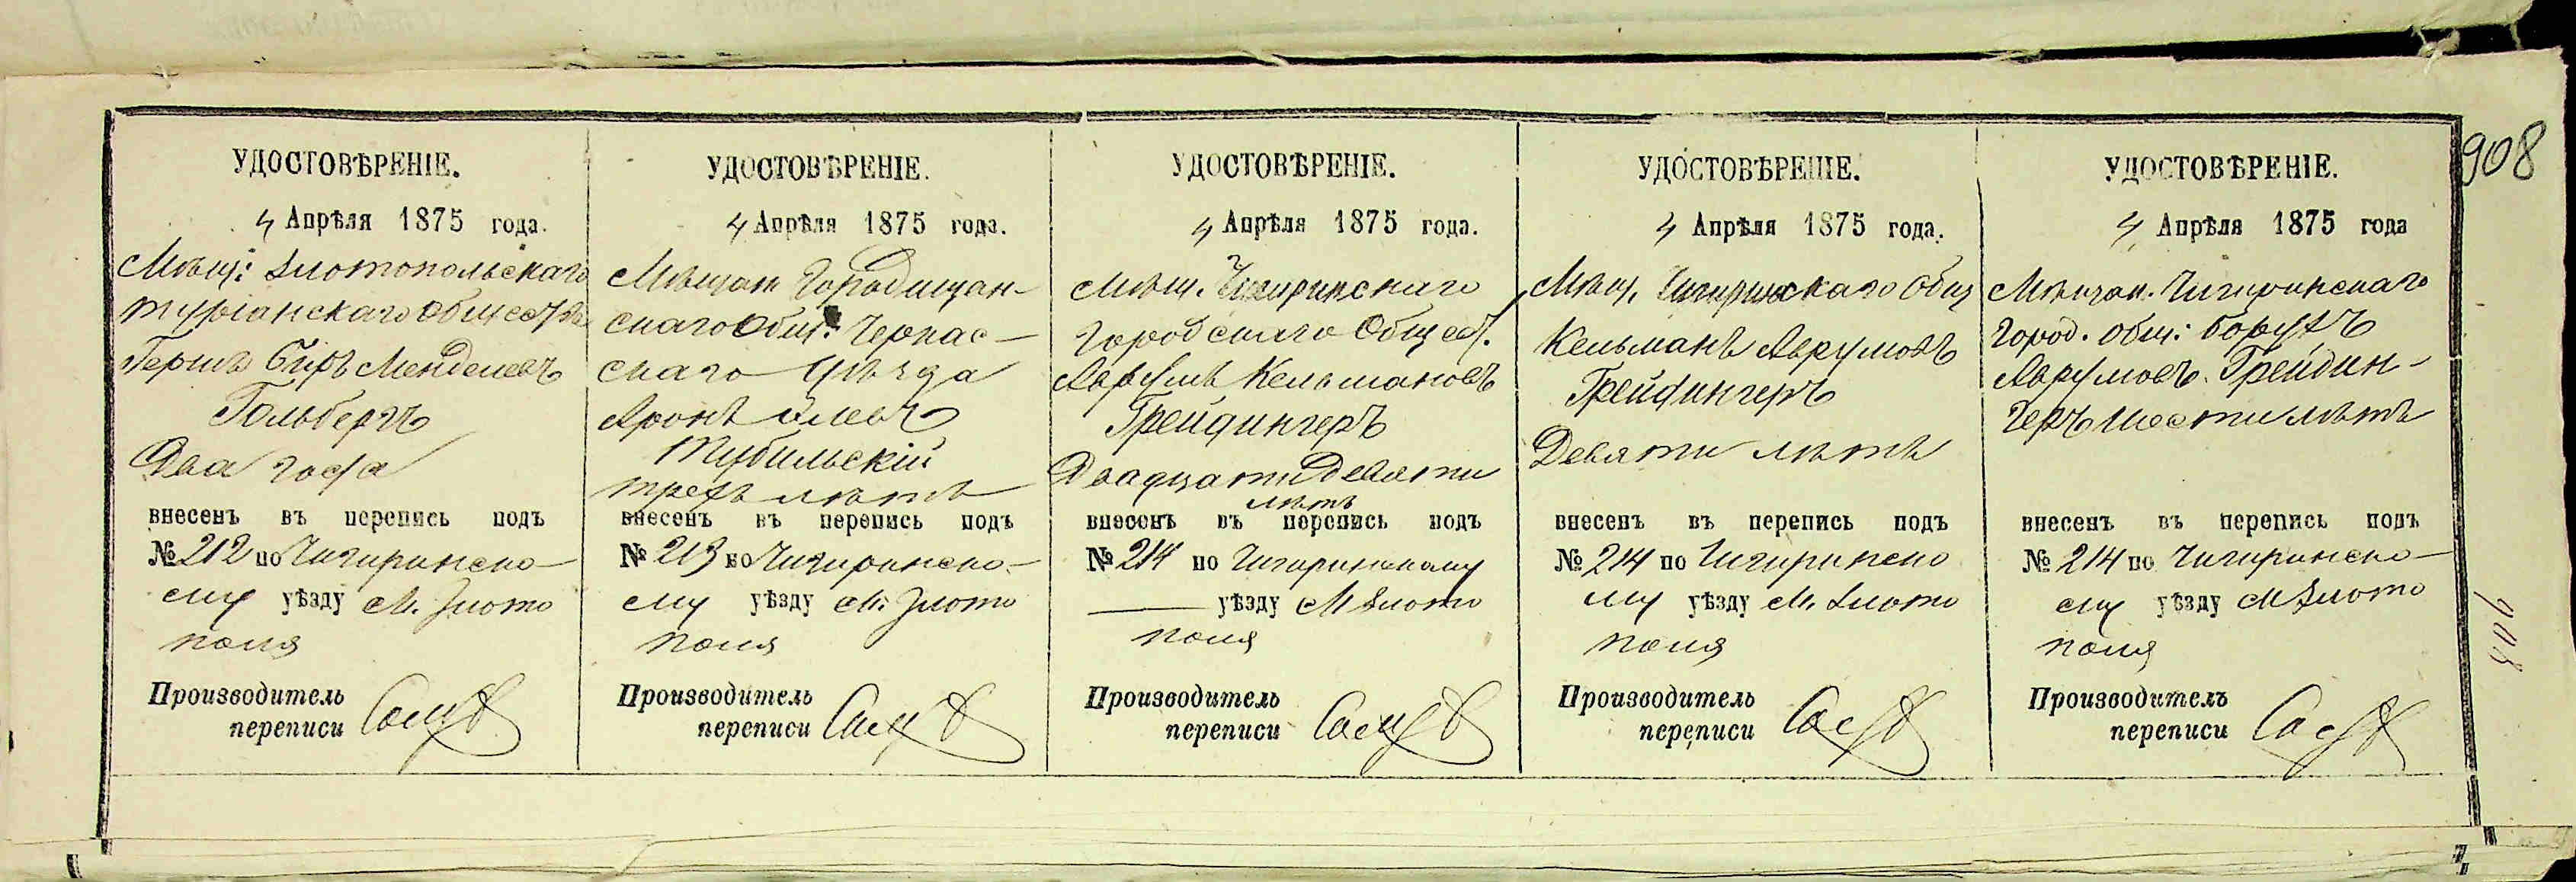 908
УДОСТОВѢРЕНІЕ.
4 Апрѣля 1875 года.
Мѣщ: Златопольскаго
туріанскаго Общества
Гершъ Беръ Менделевъ
Гольбергъ
Два года
внесенъ въ перепись подъ
№ 212 по Чигиринско-
му уѣзду М. Злото
поля
Производитель
переписи
УДОСТОВѢРЕНІЕ.
4 Апрѣля 1875 года.
Мѣщан Городищан-
скаго Общ: Черкас-
скаго Уѣзда
Аронъ
Тубильскій
трехъ лѣтъ
внесенъ въ перепись подъ
№ 213 по Чигиринско-
му уѣзду М. Злото
поля
Производитель
переписи
УДОСТОВѢРЕНІЕ.
4 Апрѣля 1875 года.
Мѣщ. Чигиринскаго
Городскаго Общест.
Аврумъ Кельмановъ
Грейдингеръ
Двадцати Девяти
лѣтъ
внесенъ въ перепись подъ
№ 214 по Чигиринскому
уѣзду М Злото
поля
Производитель
переписи
УДОСТОВѢРЕНІЕ.
4 Апрѣля 1875 года.
Мѣщ. Чигиринскаго Общ
Кельманъ Аврумовъ
Грейдингеръ
Девяти лѣтъ
внесенъ въ перепись подъ
№ 214 по Чигиринско
му уѣзду М. Злото
поля
Производитель
переписи
УДОСТОВѢРЕНІЕ.
4 Апрѣля 1875 года
Мѣщан. Чигиринскаго
Город. общ: Борухъ
Аврумовъ Грейдин-
геръ шести лѣтъ
внесенъ въ перепись подъ
№ 214 по Чигиринско-
му уѣзду М Злото
поля
Производитель
переписи
908